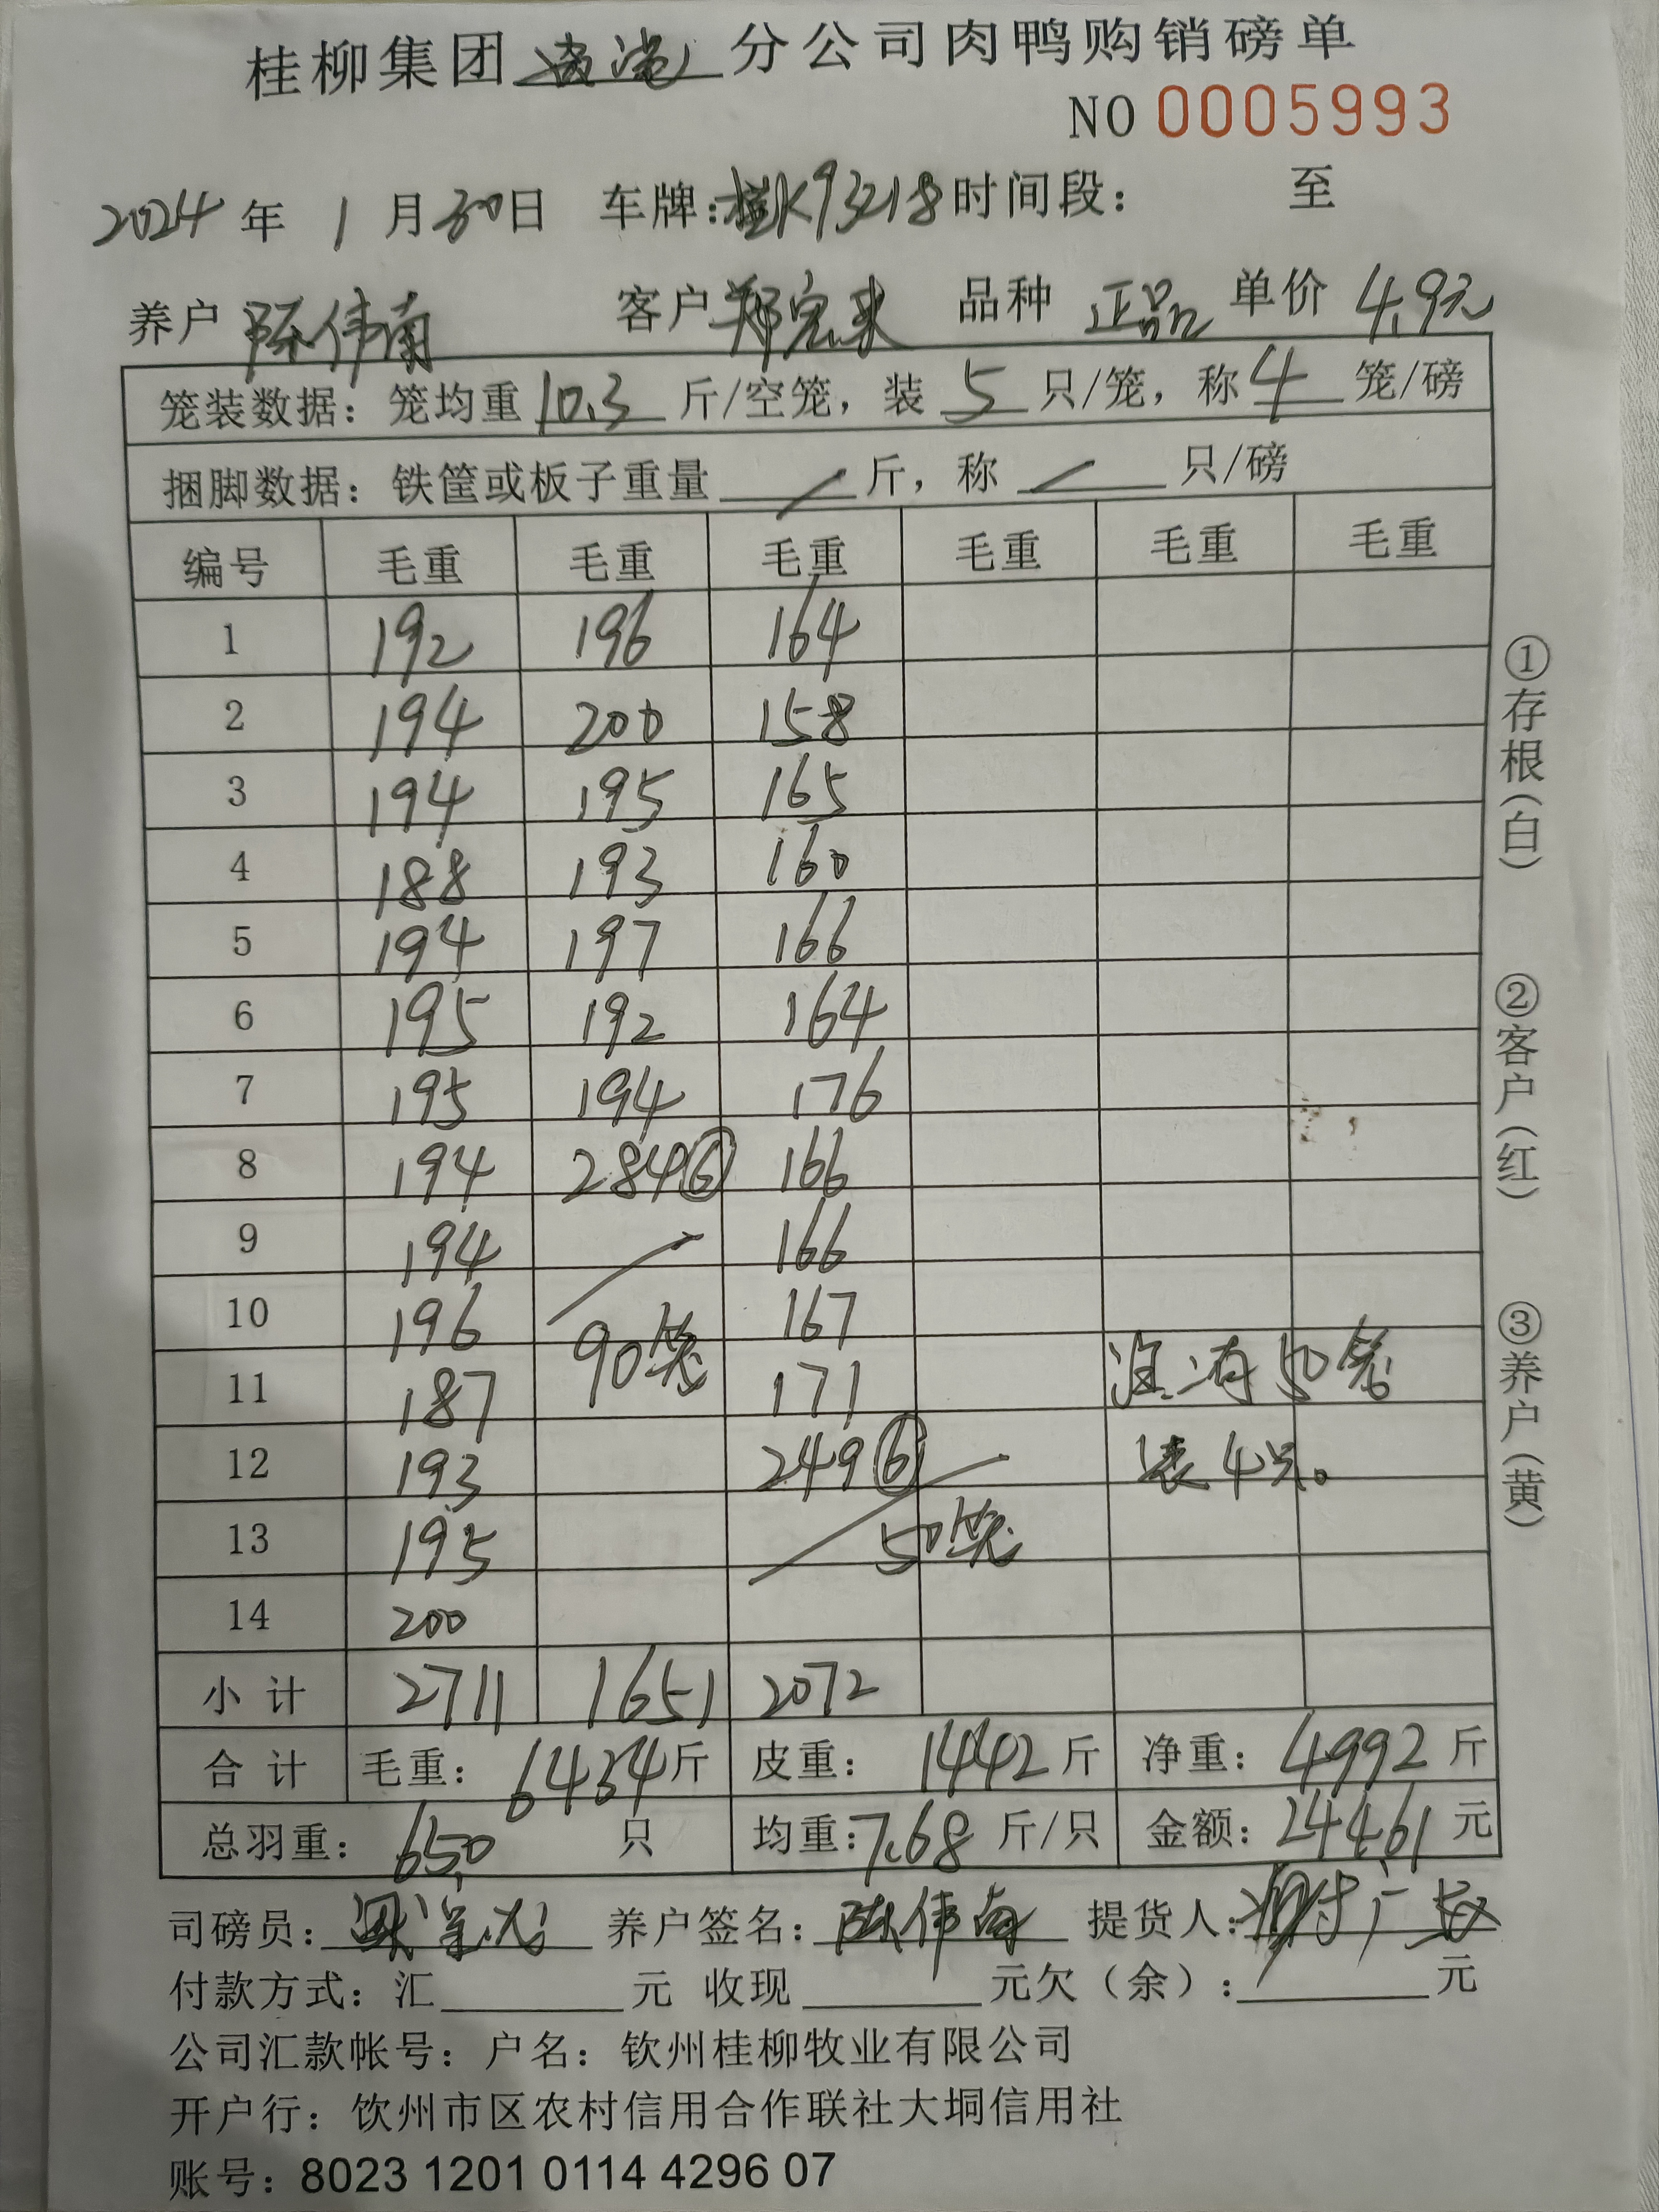 桂柳集团 分公司肉鸭购销磅单
NO 0005993
2024 年 1 月 30 日 车牌:桂K93218 时间段: 至
养户 陈伟南 客户 郑宏来 品种 正品 单价 4.9元
笼装数据: 笼均重 10.3 斤/空笼, 装 5 只/笼, 称 4 笼/磅
捆脚数据: 铁筐或板子重量 / 斤, 称 / 只/磅
编号 毛重 毛重 毛重 毛重 毛重 毛重
1 192 196 164
2 194 200 158
3 194 195 165
4 188 193 160
5 194 197 166
6 195 192 164
7 195 194 176
8 194 284⑥ 166
9 194 166
10 196 167
90笼
11 187 171 注:有50笼
12 193 249⑥ 装4只。
13 195 50笼
14 200
小计 2711 1651 2072
合计 毛重: 6434 斤 皮重: 1442 斤 净重: 4992 斤
总羽重: 650 只 均重: 7.68 斤/只 金额: 24461 元
司磅员: 养户签名: 陈伟南 提货人:
付款方式: 汇 元 收现 元欠(余): 元
公司汇款帐号: 户名: 钦州桂柳牧业有限公司
开户行: 饮州市区农村信用合作联社大垌信用社
账号: 8023 1201 0114 4296 07
①存根(白)
②客户(红)
③养户(黄)